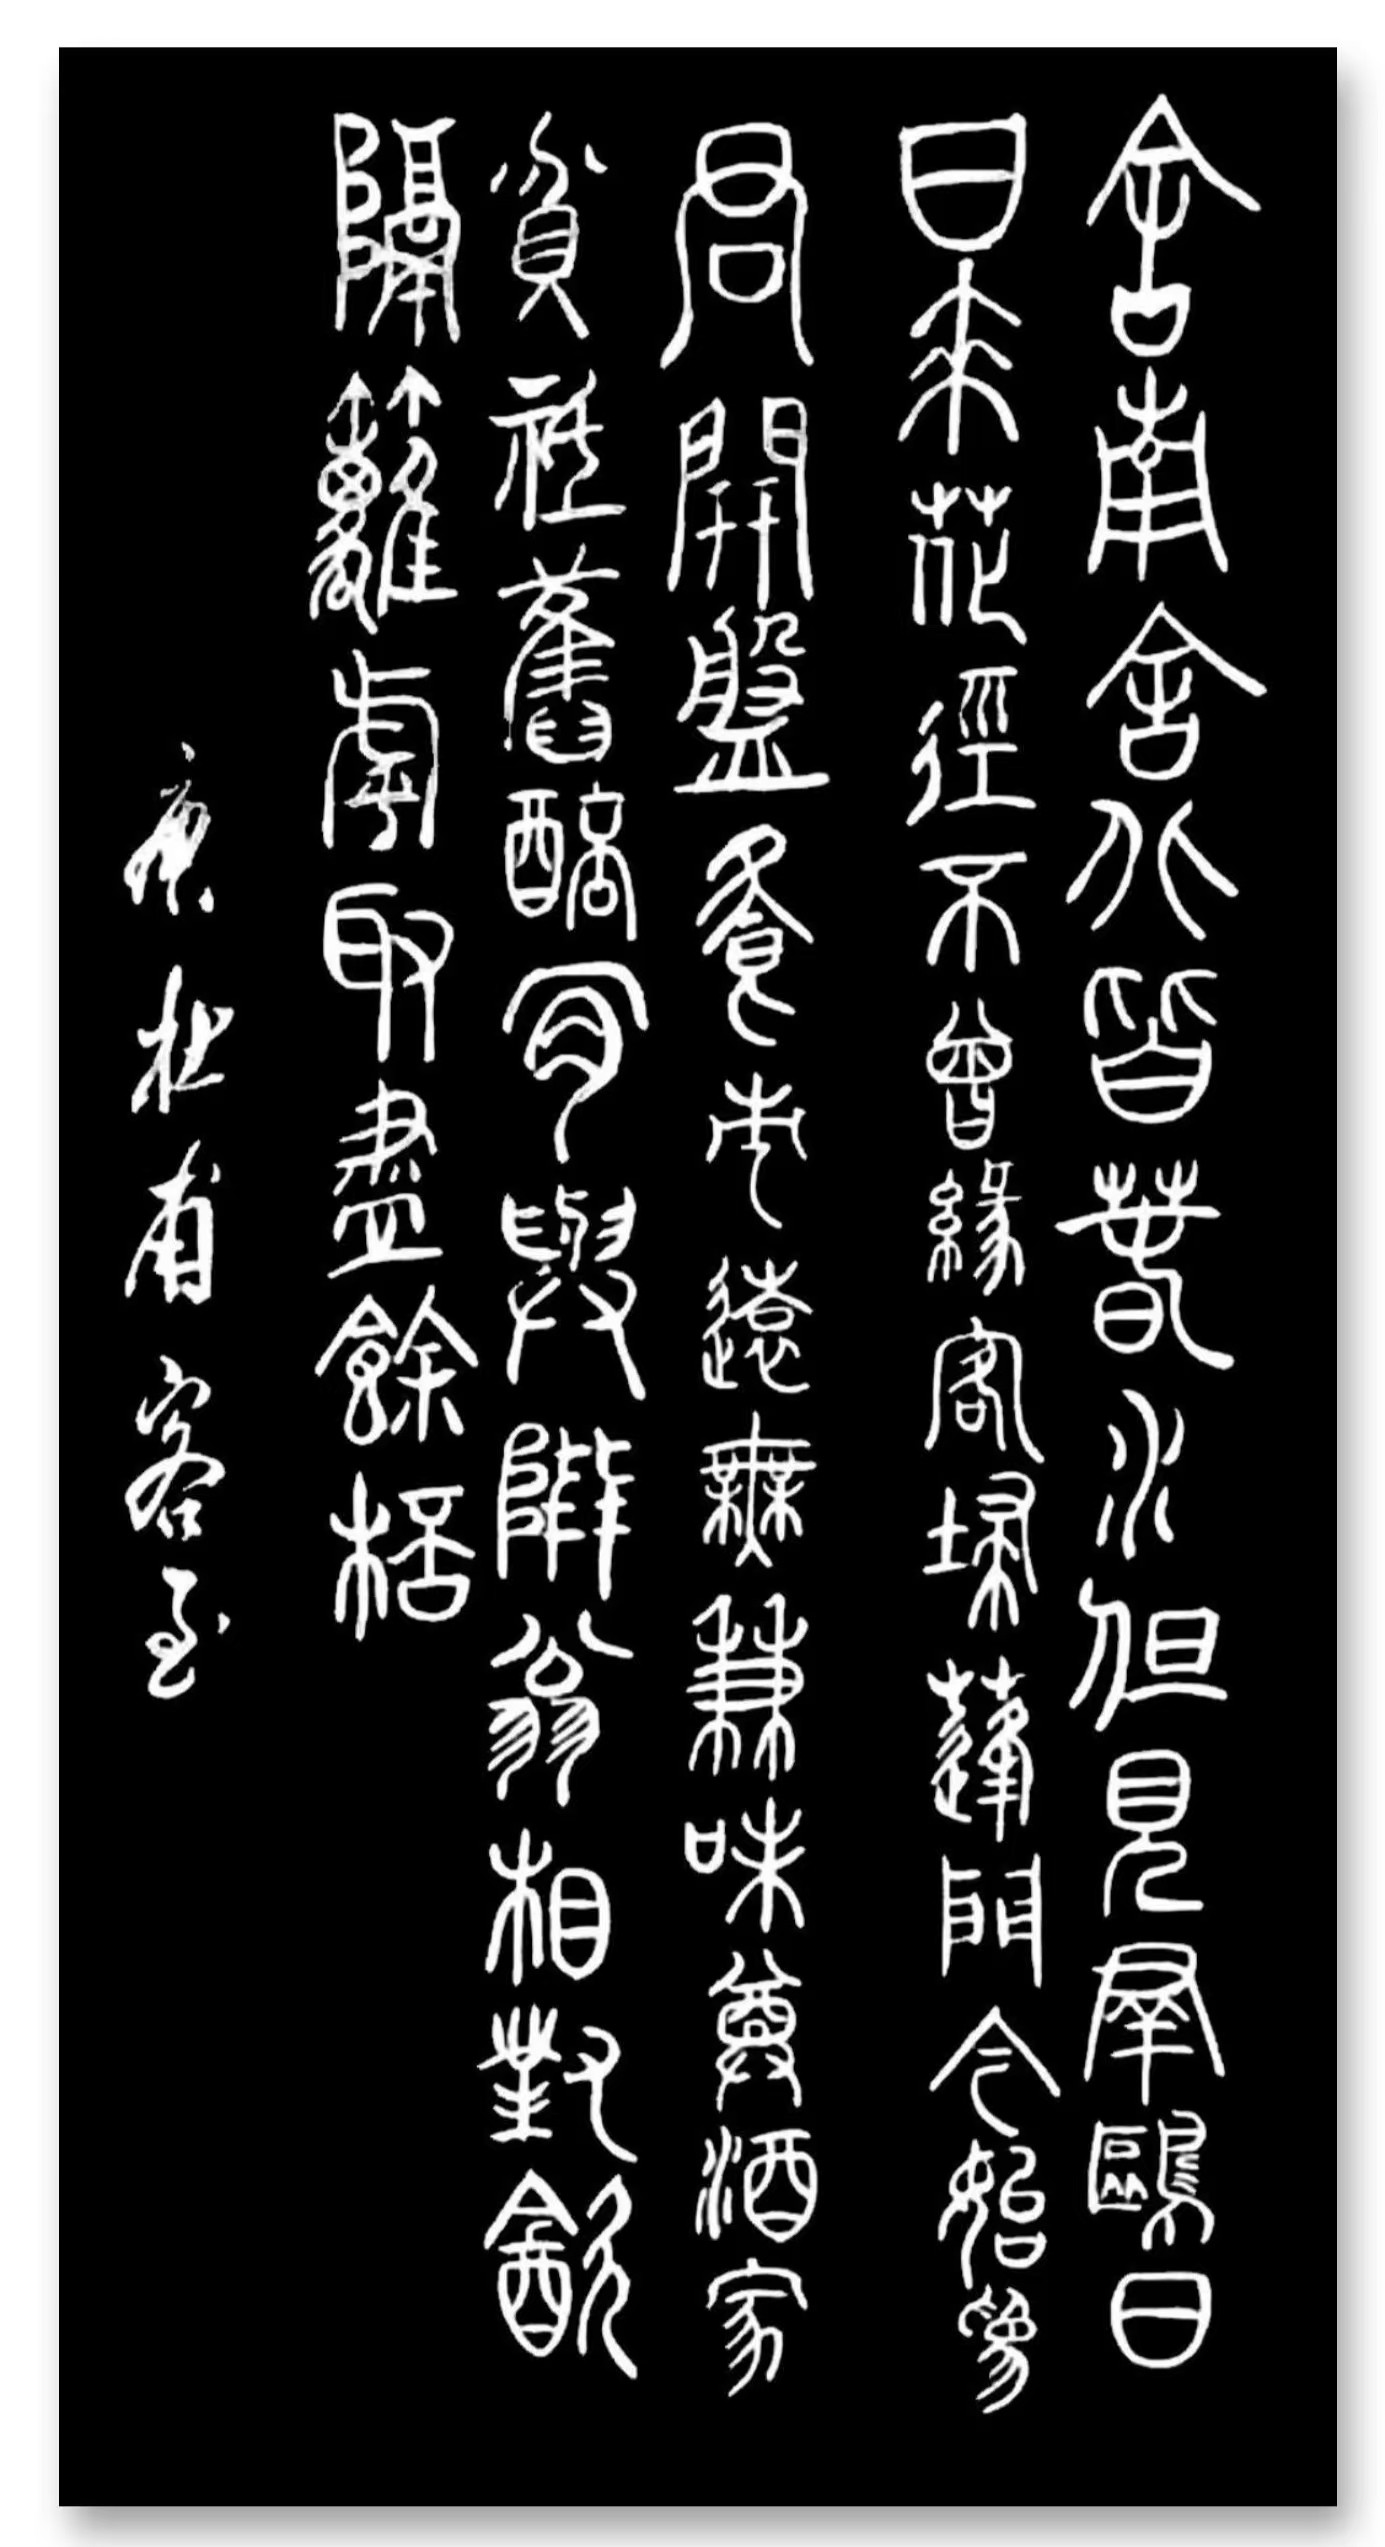 舍南舍北皆春水但見羣鷗日
日來花徑不曾緣客掃蓬門今始爲
君開盤飧市遠無兼味尊酒家
貧祗舊醅肯與鄰翁相對飲
隔籬虖取盡餘桮
唐杜甫客至